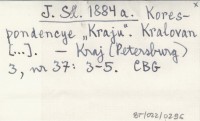 J. Sł. 1884 a. Kores-
pondencye „Kraju". Kralovan
[...]. — Kraj (Petersburg)
3, nr 37: 3-5. CBG